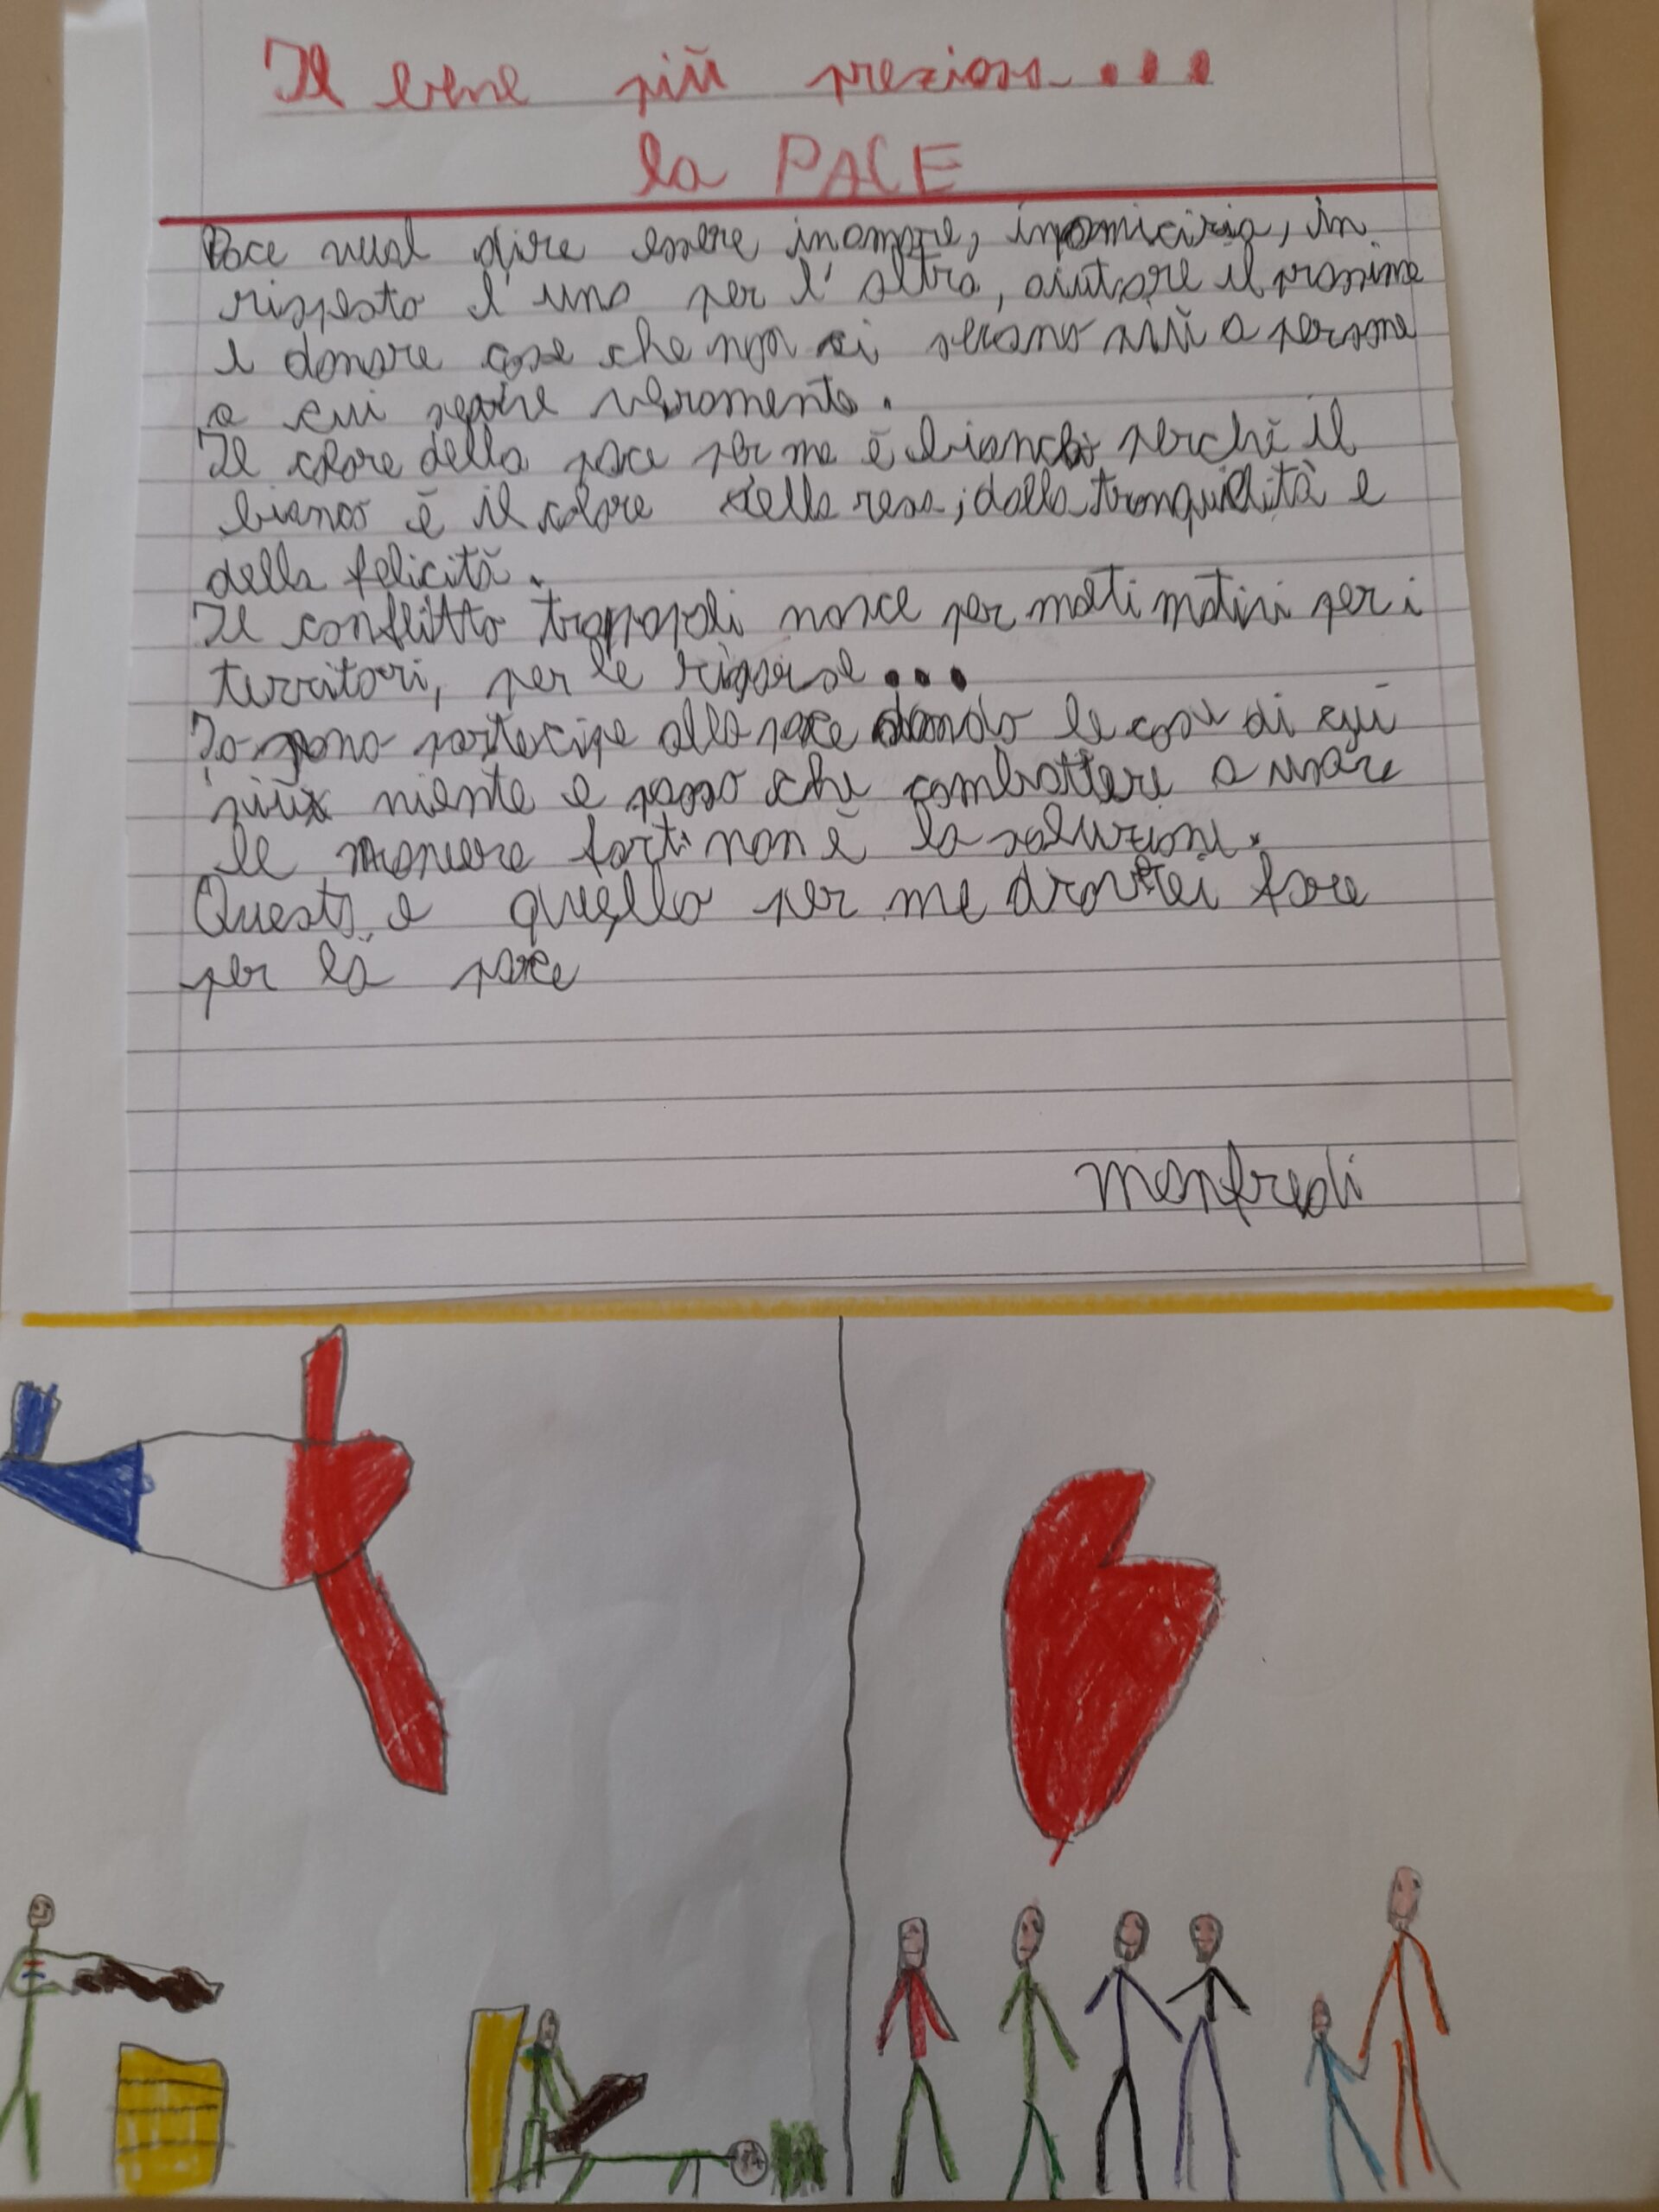 Il bene più prezioso...
la PACE
Pace vual dire essere inamore, inamicizia, in
rispeto l'uno per l'altro, aiutare il prossimo
e donare cose che non ci servono più a persone
a cui serve veramente.
Il colore della pace per me è bianco perchè il
bianco è il colore della resa, della tranquillità e
della felicità.
Il conflitto tra popoli nasce per molti motivi per i
territori, per le risorse...
Io sono partecipe alla pace dando le cose di cui
più niente e penso che combattere a usare
le maniere forti non è la soluzione.
Questo e quello per me dovrei fare
per la pace
Manfredi